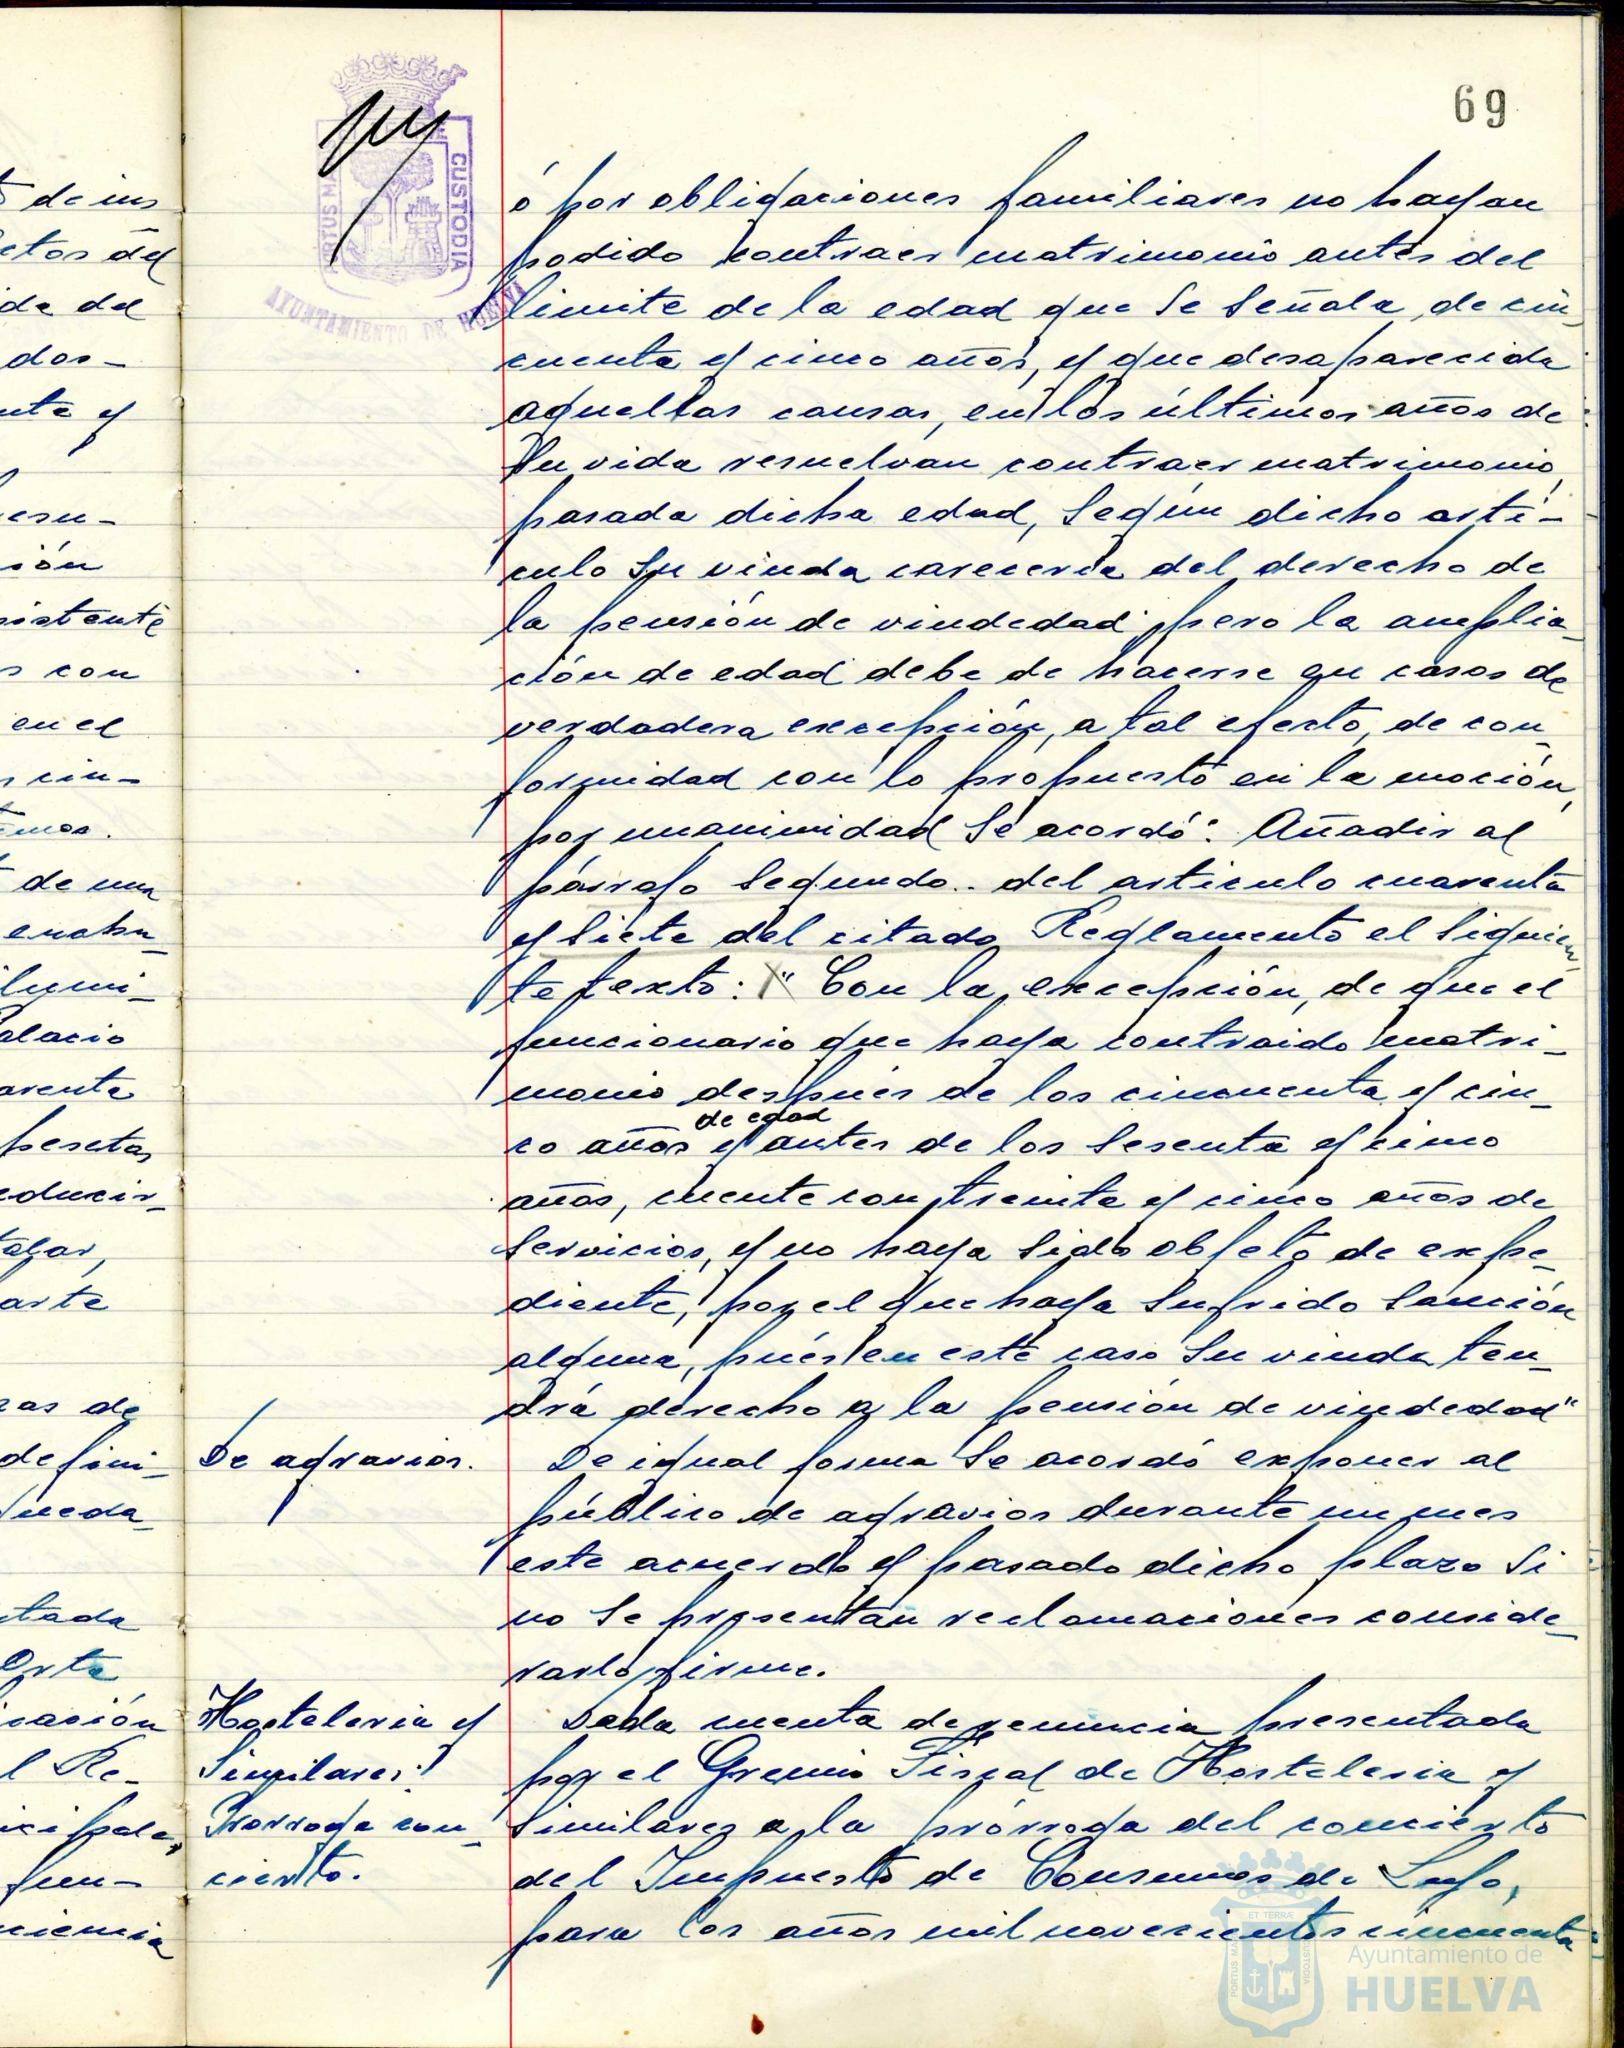 69
PORTUS M
CUSTODIA
AYUNTAMIENTO DE HUELVA
t de ins
ctos del
ida del
dos-
nte y
esu-
ión
sistente
s con
en el
s cin-
temos.
t de una
enahu-
ilumi-
alacio
arenta
pesetas
educir-
talar,
arte
ras de
defini-
queda-
tada
Orta
icación
l Re-
icipales
fun-
ciencia
ó por obligaciones familiares no hayan
podido contraer matrimonio antes del
limite de la edad que se señala, de cin-
cuenta y cinco años, y que desaparecida
aquellas causas, en los últimos años de
su vida resuelvan contraer matrimonio,
pasada dicha edad, según dicho artí-
culo su viuda careceria del derecho de
la pensión de viudedad; pero la amplia-
ción de edad debe de hacerse en casos de
verdadera excepción, a tal efecto, de con-
formidad con lo propuesto en la moción,
por unanimidad se acordó: Añadir al
párrafo segundo.. del articulo cuarenta
y siete del citado Reglamento el siguien-
te texto: "Con la excepción, de que el
funcionario que haya contraido matri-
monio después de los cincuenta y cin-
co años de edad y antes de los sesenta y cinco
años, cuente con treinta y cinco años de
servicios, y no haya sido objeto de expe-
diente, por el que haya sufrido sanción
alguna, pués en este caso su viuda ten-
drá derecho a la pensión de viudedad"
De agravios.
De igual forma se acordó exponer al
público de agravios durante un mes
este acuerdo y pasado dicho plazo si
no se presentan reclamaciones conside-
rarlo firme.
Hosteleria y
Similares:
Prorroga con-
cierto.
Dada cuenta de renuncia presentada
por el Gremio Fiscal de Hosteleria y
Similares a la prórroga del concierto
del Impuesto de Consumos de Lujo,
para los años mil novecientos cincuenta
ET TERRÆ
PORTUS MA
CUSTODIA
Ayuntamiento de
HUELVA